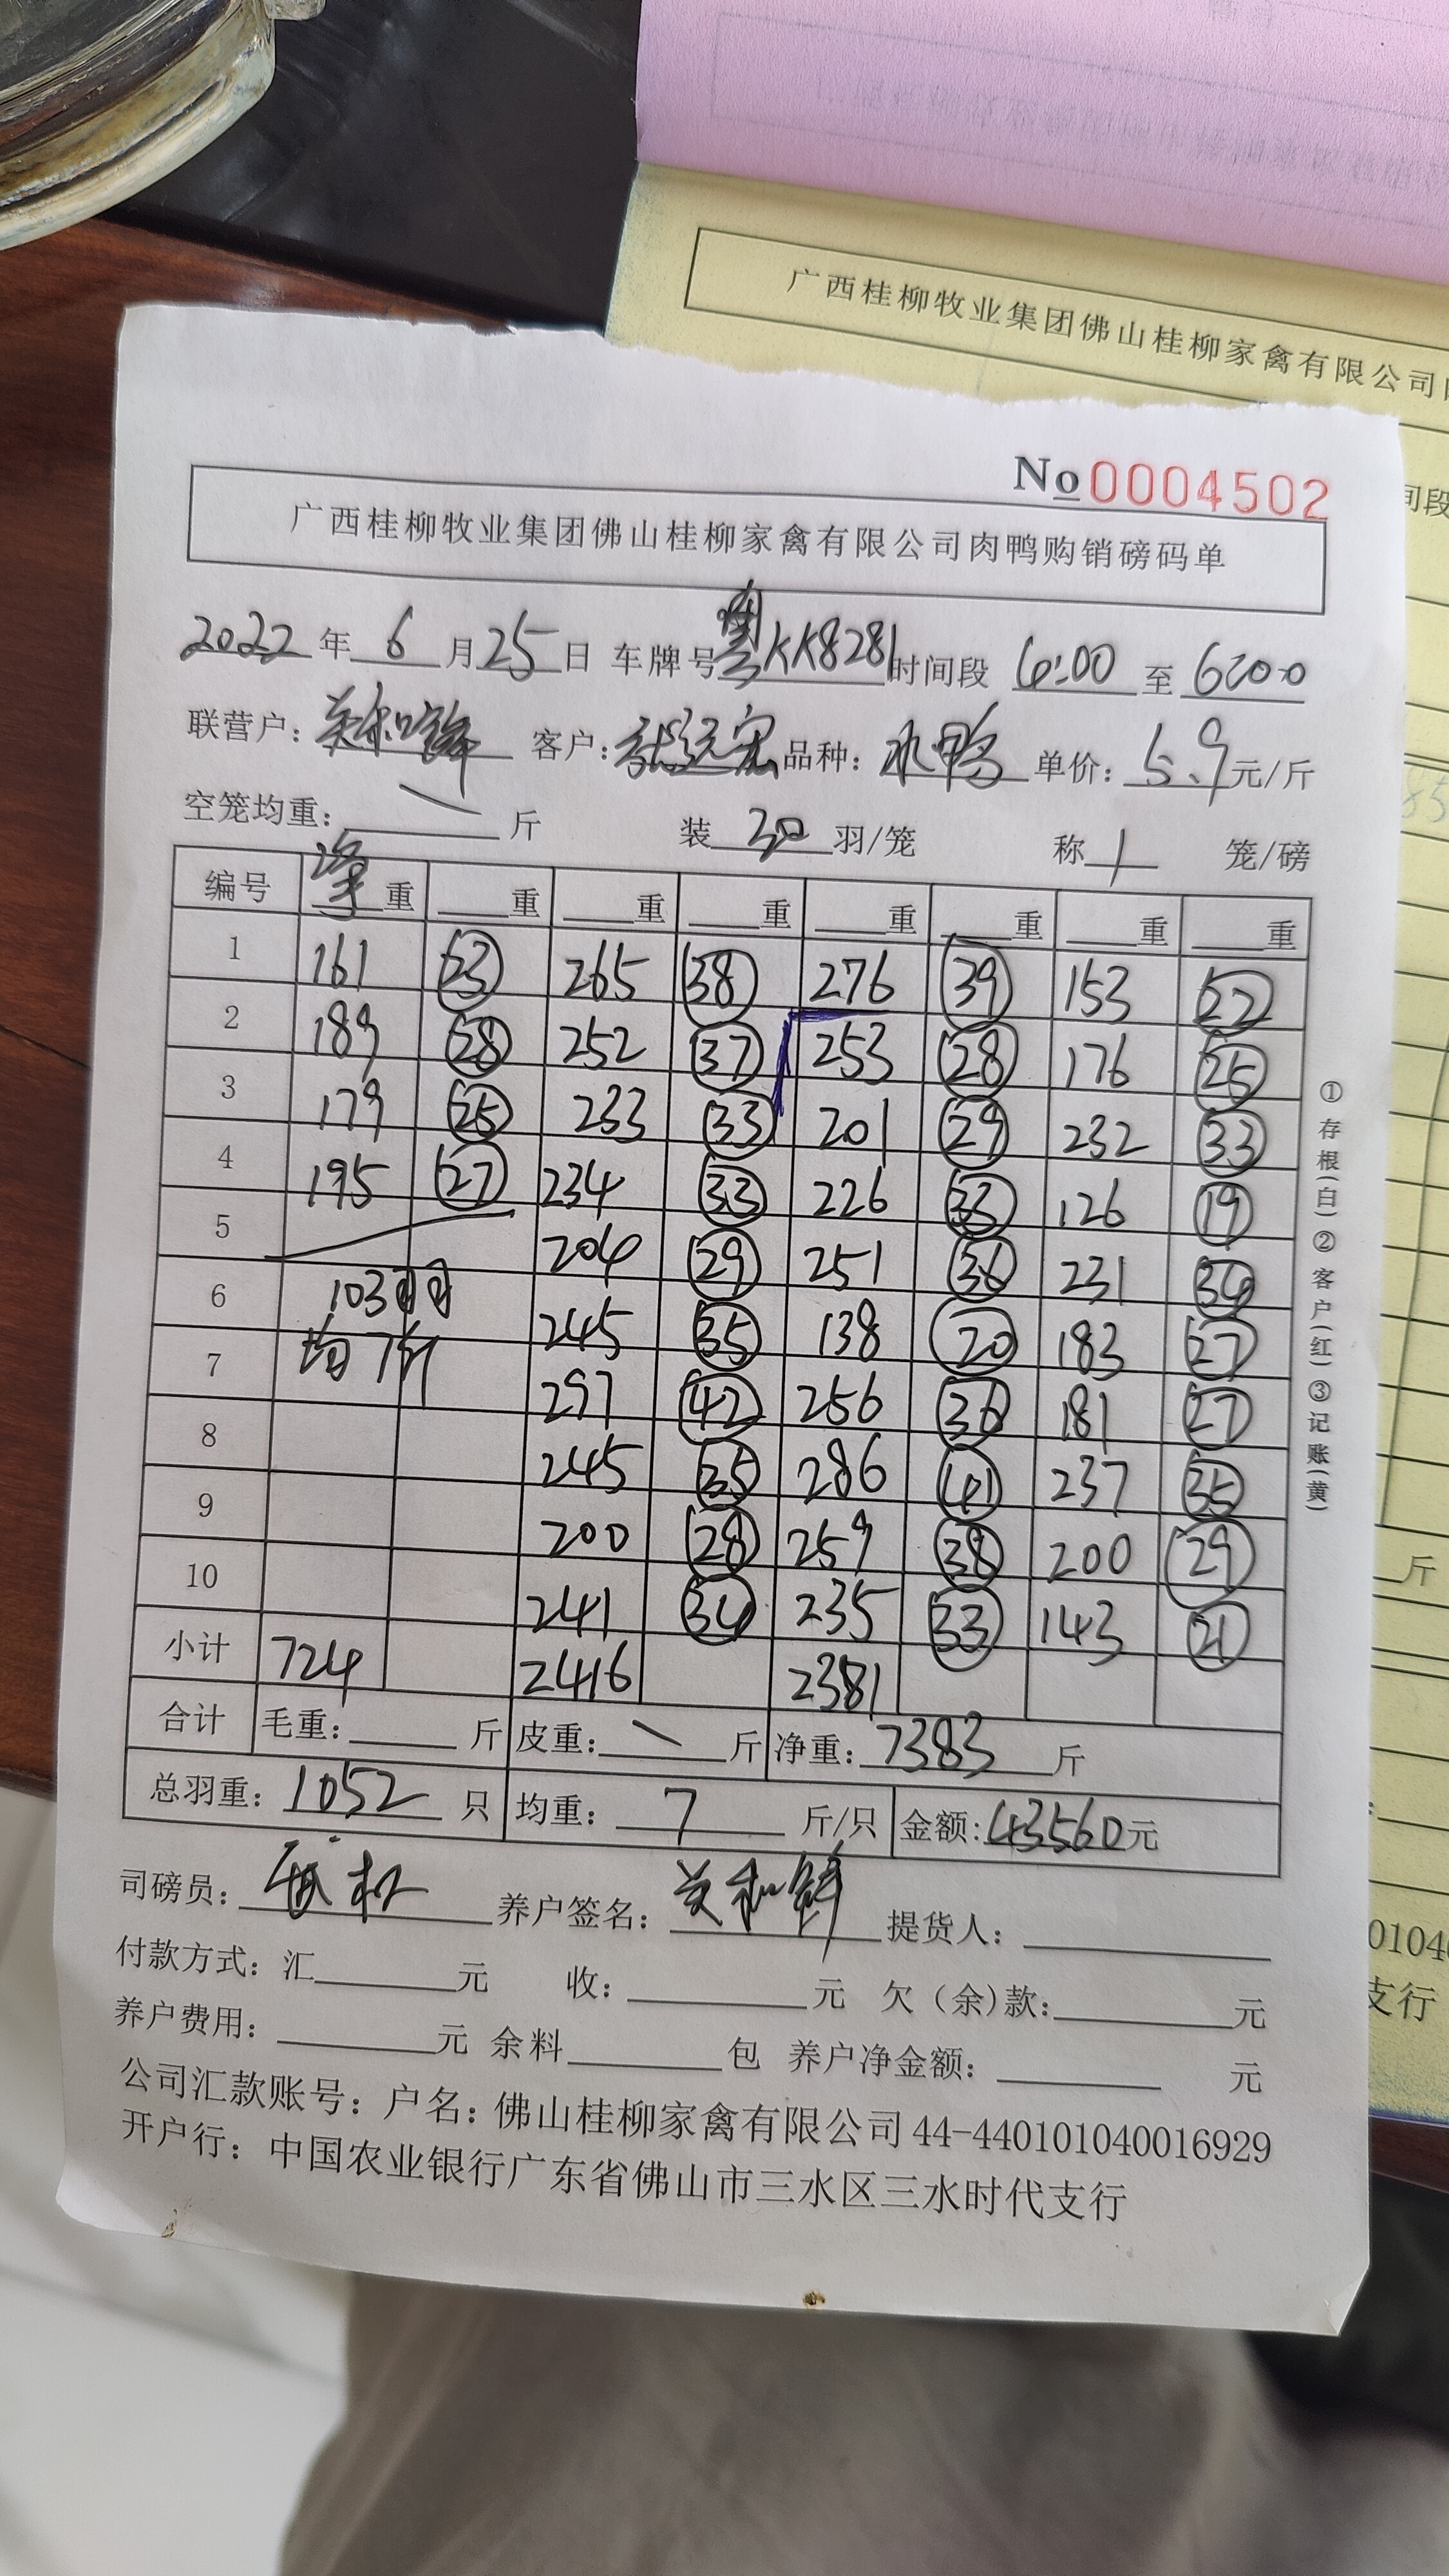 广西桂柳牧业集团佛山桂柳家禽有限公司
No 0004502
广西桂柳牧业集团佛山桂柳家禽有限公司肉鸭购销磅码单
2022 年 6 月 25 日 车牌号 粤KK8281 时间段 4:00 至 6:00
联营户: 客户: 张远宏 品种: 水鸭 单价: 5.9 元/斤
空笼均重: \ 斤 装 30 羽/笼 称 1 笼/磅
编号 净重 重 重 重 重 重 重 重
1 161 23 265 38 276 39 153 22
2 189 28 252 37 253 28 176 25
3 179 25 233 33 201 29 232 33
4 195 27 234 33 226 33 126 19
5 204 29 251 36 231 34
6 103羽 245 35 138 20 183 27
7 均7斤 297 42 256 36 181 27
8 245 35 286 41 237 35
9 200 28 259 38 200 29
10 241 34 235 33 143 21
小计 724 2416 2381
合计 毛重: 斤 皮重: \ 斤 净重: 7383 斤
总羽重: 1052 只 均重: 7 斤/只 金额: 43560 元
司磅员: 养户签名: 提货人:
付款方式: 汇 元 收: 元 欠(余)款: 元
养户费用: 元 余料 包 养户净金额: 元
公司汇款账号: 户名: 佛山桂柳家禽有限公司 44-440101040016929
开户行: 中国农业银行广东省佛山市三水区三水时代支行
①存根(白)②客户(红)③记账(黄)
间段
斤
0104
支行